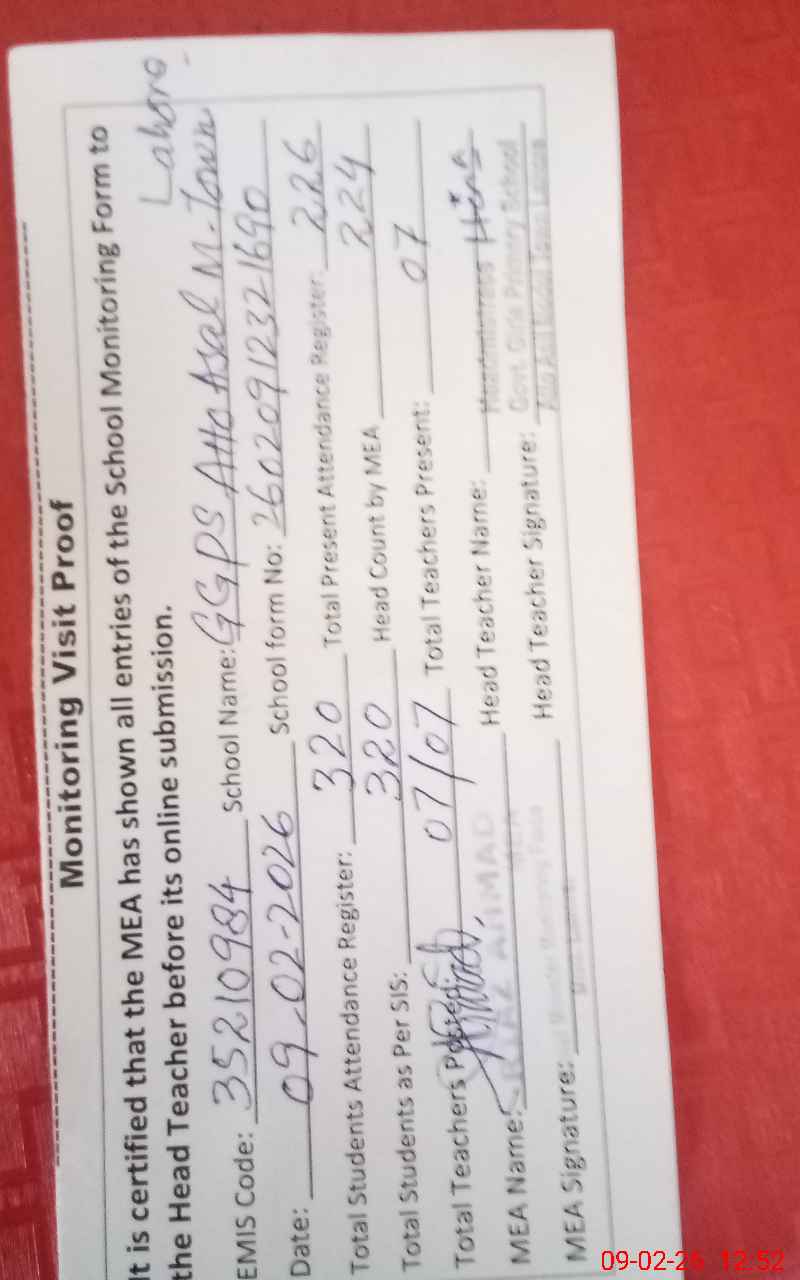 Monitoring Visit Proof
It is certified that the MEA has shown all entries of the School Monitoring Form to
the Head Teacher before its online submission.
Lahore
EMIS Code: 35210984 School Name: GGPS Atto Asal M-Town
Date: 09-02-2026 School form No: 26020912321690
Total Students Attendance Register: 320 Total Present Attendance Register: 226
Total Students as Per SIS: 320 Head Count by MEA 224
Total Teachers Posted: 07/07 Total Teachers Present: 07
MEA Name: AHMAD Head Teacher Name: Headmistress Hina
MEA
Govt. Girls Primary School
MEA Signature: Head Teacher Signature:
09-02-26 12:52